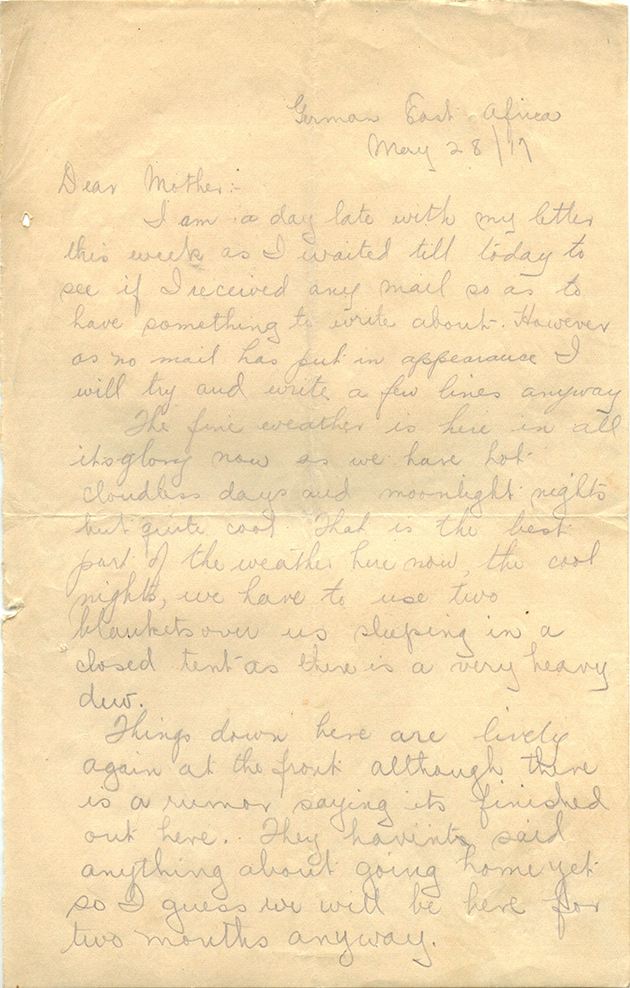 German East Africa
May 28/17
Dear Mother:-
I am a day late with my letter
this week as I waited till today to
see if I received any mail so as to
have something to write about. However
as no mail has put in appearance I
will try and write a few lines anyway
The fine weather is here in all
its glory now as we have hot
cloudless days and moonlight nights
but quite cool. That is the best
part of the weather here now, the cool
nights, we have to use two
blankets over us sleeping in a
closed tent as there is a very heavy
dew.
Things down here are lively
again at the front although there
is a rumor saying its finished
out here. They havint said
anything about going home yet
so I guess we will be here for
two months anyway.